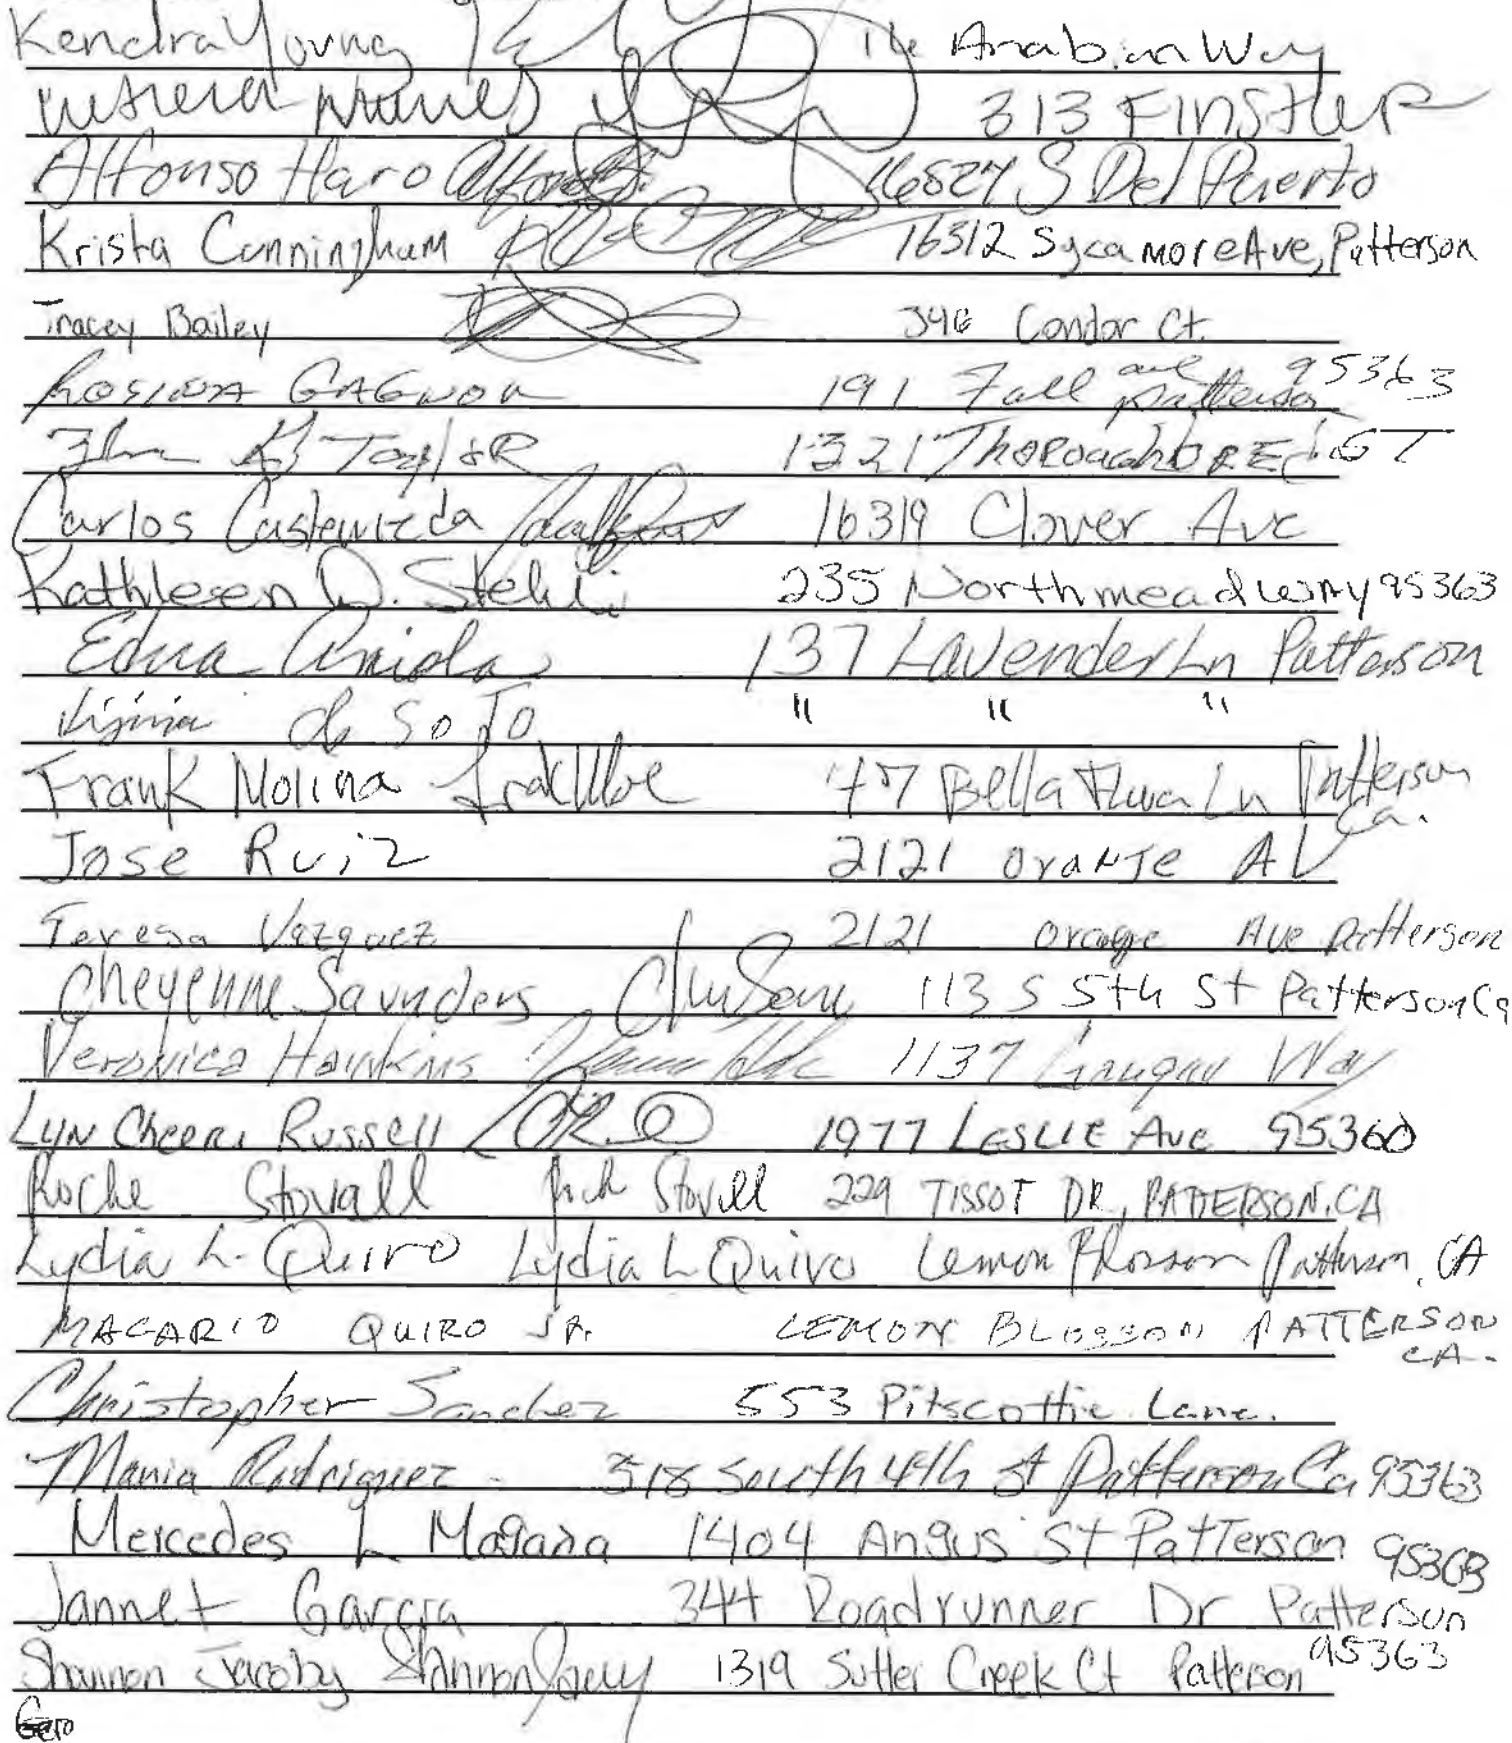 Kendra Young Arabian Way
313
Alfonso Haro 16527 S Del Puerto
Krista Cunningham 16312 Sycamore Ave, Patterson
Tracey Bailey 346 Condor Ct.
Rosina Gagnon 191 Fall ave Patterson 95363
Taylor 1321 Thoroughbred ST
Carlos 16319 Clover Ave
Kathleen D. Stehli 235 Northmead WAY 95363
Edna 137 Lavender Ln Patterson
de Soto " " "
Frank Molina 47 Bella Flora Ln Patterson
Ca.
Jose Ruiz 2121 OranJe AV
Teresa Vazquez 2121 Orange Ave Patterson
Cheyenne Saunders 113 S 5th St Patterson Ca
Veronica Hawkins 1137 Way
Lyn Russell 1977 LESLIE Ave 95360
Roche Stovall Stovall 229 TISSOT DR, PATTERSON, CA
Lydia L. Quiro Lydia L Quiro Lemon Blossom Patterson, CA
MACARIO QUIRO JR. LEMON BLOSSOM PATTERSON
CA.
Christopher Sanchez 553 Pitscottie Lane.
Maria Rodriguez 518 South 4th st Patterson Ca 95363
Mercedes L Magana 1404 Angus St Patterson 95363
Jannet Garcia 344 Roadrunner Dr Patterson
95363
Shannon Jacoby 1319 Sutter Creek Ct Patterson